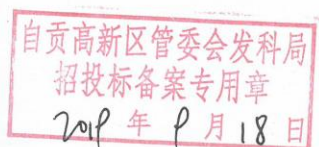 自贡高新区管委会发科局
招投标备案专用章
2019 年 9 月 18 日